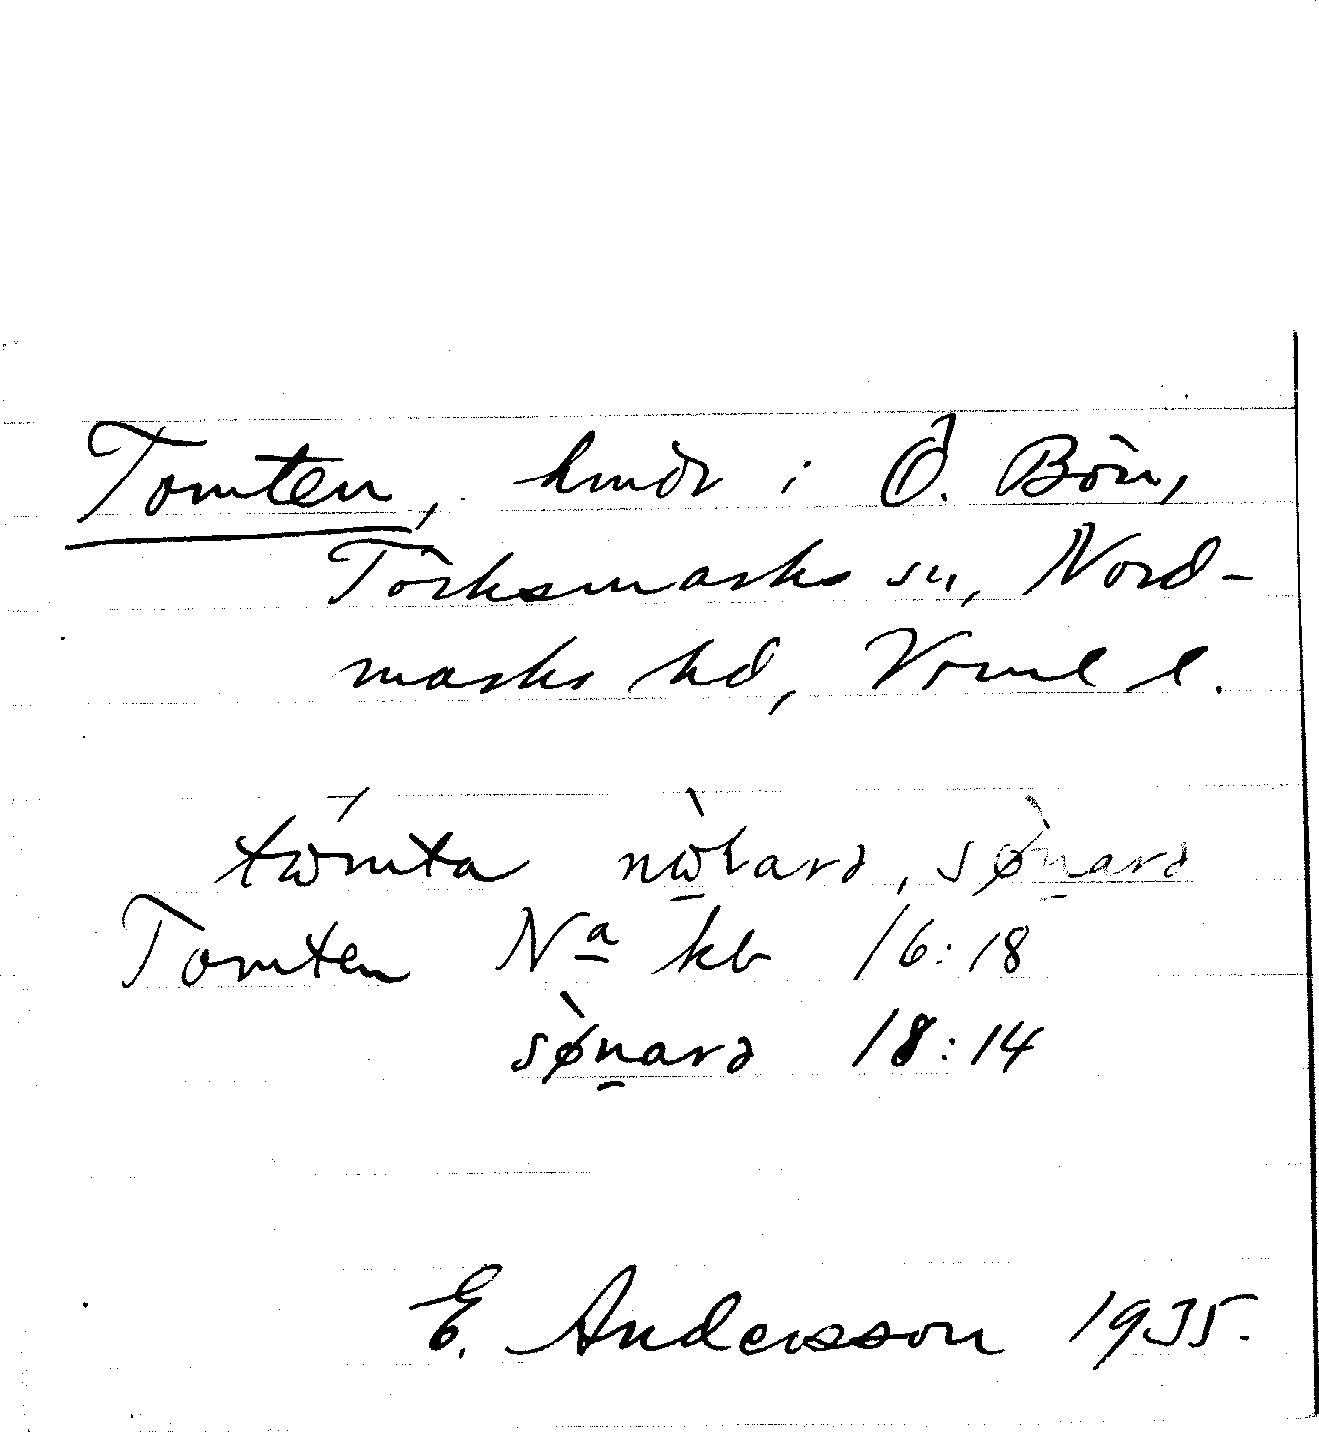 Tomten, hmdr i Ö. Bön,
Törksmarks sn, Nord-
marks hd, Vrml l.
tɷ́mta nɷ̀larə, sø̀narə
Tomten Na kb 16:18
sø̀narə 18:14
E. Andersson 1935.